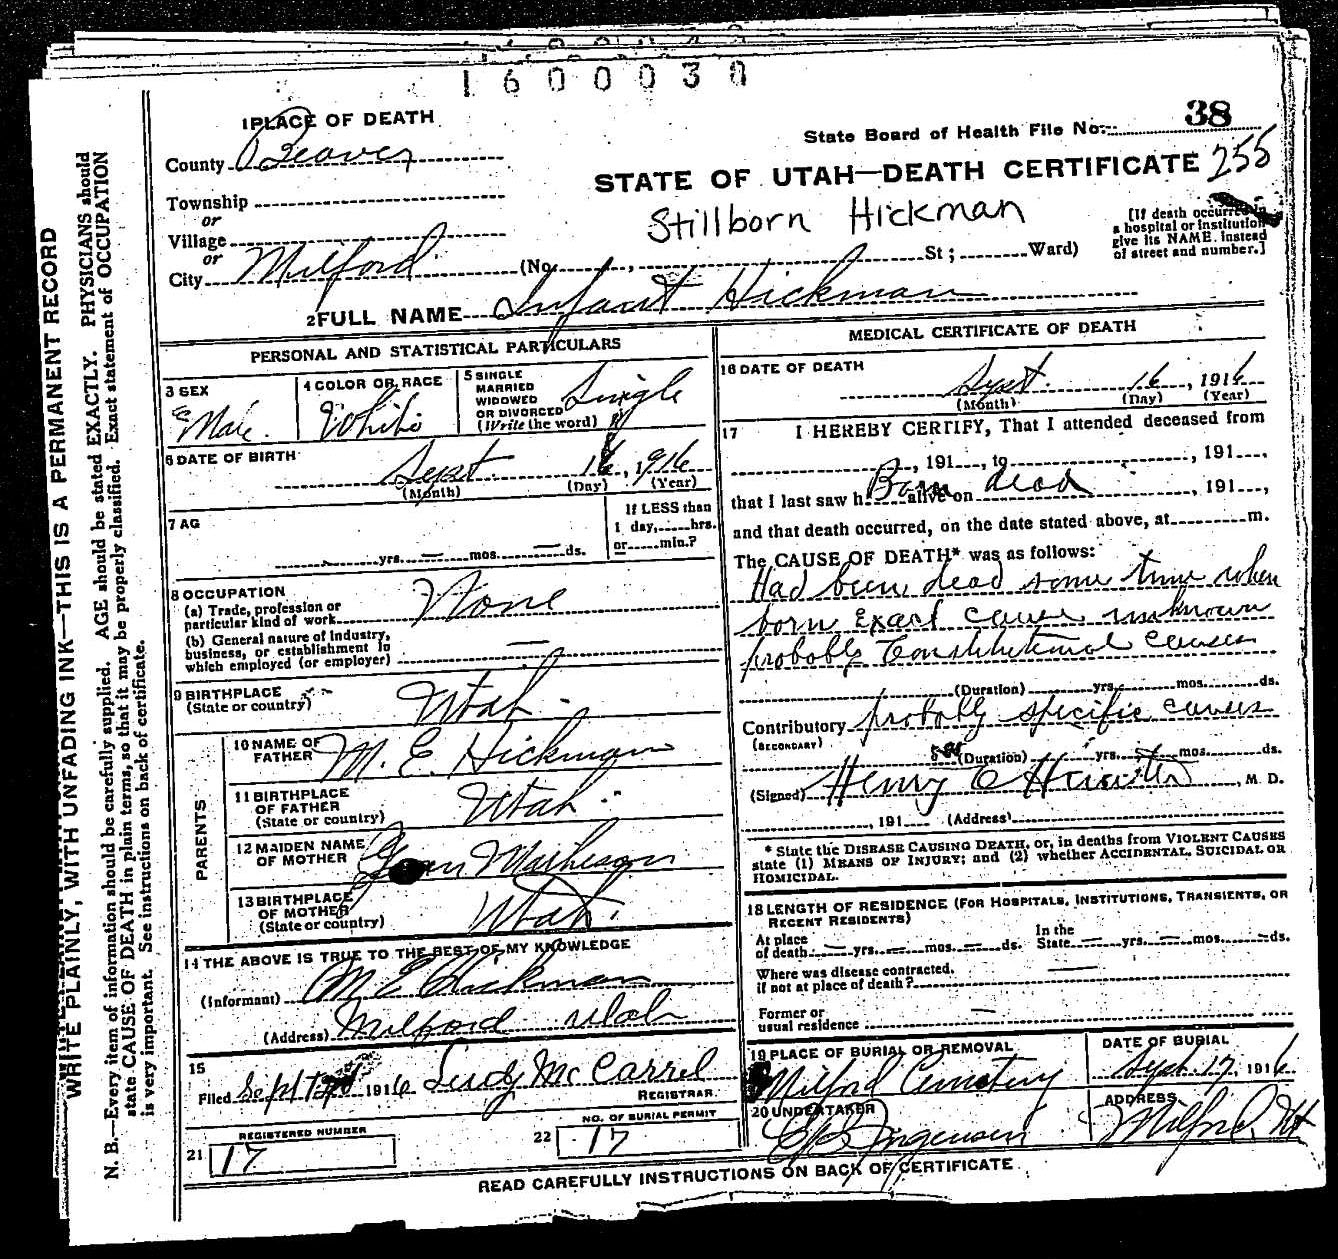 1600030
1 PLACE OF DEATH
State Board of Health File No. 38
County Beaver
STATE OF UTAH—DEATH CERTIFICATE 255
Township
or
Stillborn Hickman
[If death occurred in a hospital or institution give its NAME, instead of street and number.]
Village
or
City Milford (No. , St; Ward)
2 FULL NAME Infant Hickman
PERSONAL AND STATISTICAL PARTICULARS
3 SEX
Male.
4 COLOR OR RACE
White
5 SINGLE
MARRIED
WIDOWED
OR DIVORCED
(Write the word)
Single
6 DATE OF BIRTH
Sept. 16, 1916
(Month) (Day) (Year)
7 AG
yrs. — mos. — ds.
If LESS than
1 day, hrs.
or min.?
8 OCCUPATION
(a) Trade, profession or
particular kind of work
None
(b) General nature of industry,
business, or establishment in
which employed (or employer) —
9 BIRTHPLACE
(State or country)
Utah.
PARENTS
10 NAME OF
FATHER
M. E. Hickman
11 BIRTHPLACE
OF FATHER
(State or country)
Utah.
12 MAIDEN NAME
OF MOTHER
13 BIRTHPLACE
OF MOTHER
(State or country)
Utah.
14 THE ABOVE IS TRUE TO THE BEST OF MY KNOWLEDGE
(Informant) M E Hickman
(Address) Milford Utah
15
Filed Sept 1916 McCarrel
REGISTRAR.
REGISTERED NUMBER
21 17
NO. OF BURIAL PERMIT
22 17
MEDICAL CERTIFICATE OF DEATH
16 DATE OF DEATH
Sept. 16, 1916
(Month) (Day) (Year)
17 I HEREBY CERTIFY, That I attended deceased from
, 191 , to , 191 ,
that I last saw h alive on , 191 ,
Born dead
and that death occurred, on the date stated above, at m.
The CAUSE OF DEATH* was as follows:
Had been dead some time when
born Exact cause unknown
probably Constitutional causes
(Duration) yrs. mos. ds.
Contributory probably specific causes
(SECONDARY)
(Duration) yrs. mos. ds.
(Signed) Henry C , M. D.
, 191 (Address)
* State the DISEASE CAUSING DEATH, or, in deaths from VIOLENT CAUSES
state (1) MEANS OF INJURY; and (2) whether ACCIDENTAL, SUICIDAL OR
HOMICIDAL.
18 LENGTH OF RESIDENCE (FOR HOSPITALS, INSTITUTIONS, TRANSIENTS, OR
RECENT RESIDENTS)
At place
of death — yrs. — mos. — ds.
In the
State — yrs. — mos. — ds.
Where was disease contracted,
if not at place of death? —
Former or
usual residence —
19 PLACE OF BURIAL OR REMOVAL
Milford Cemetery
DATE OF BURIAL
Sept. 17, 1916
20 UNDERTAKER
Jorgensen
ADDRESS
Milford, Ut
READ CAREFULLY INSTRUCTIONS ON BACK OF CERTIFICATE.
WRITE PLAINLY, WITH UNFADING INK—THIS IS A PERMANENT RECORD
N. B.—Every item of information should be carefully supplied. AGE should be stated EXACTLY. PHYSICIANS should
state CAUSE OF DEATH in plain terms, so that it may be properly classified. Exact statement of OCCUPATION
is very important. See instructions on back of certificate.